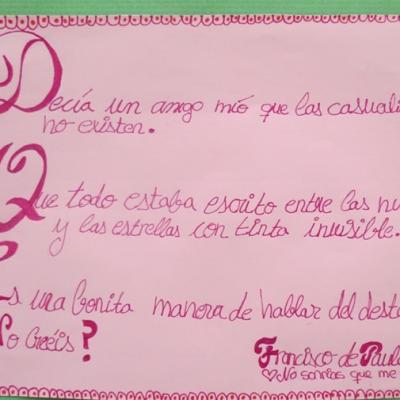 Decía un amigo mío que las casuali
no existen.
Que todo estaba escrito entre las nu
y las estrellas con tinta invisible.
Es una bonita manera de hablar del dest
No creéis?
Francisco de Paula
No sonrías que me